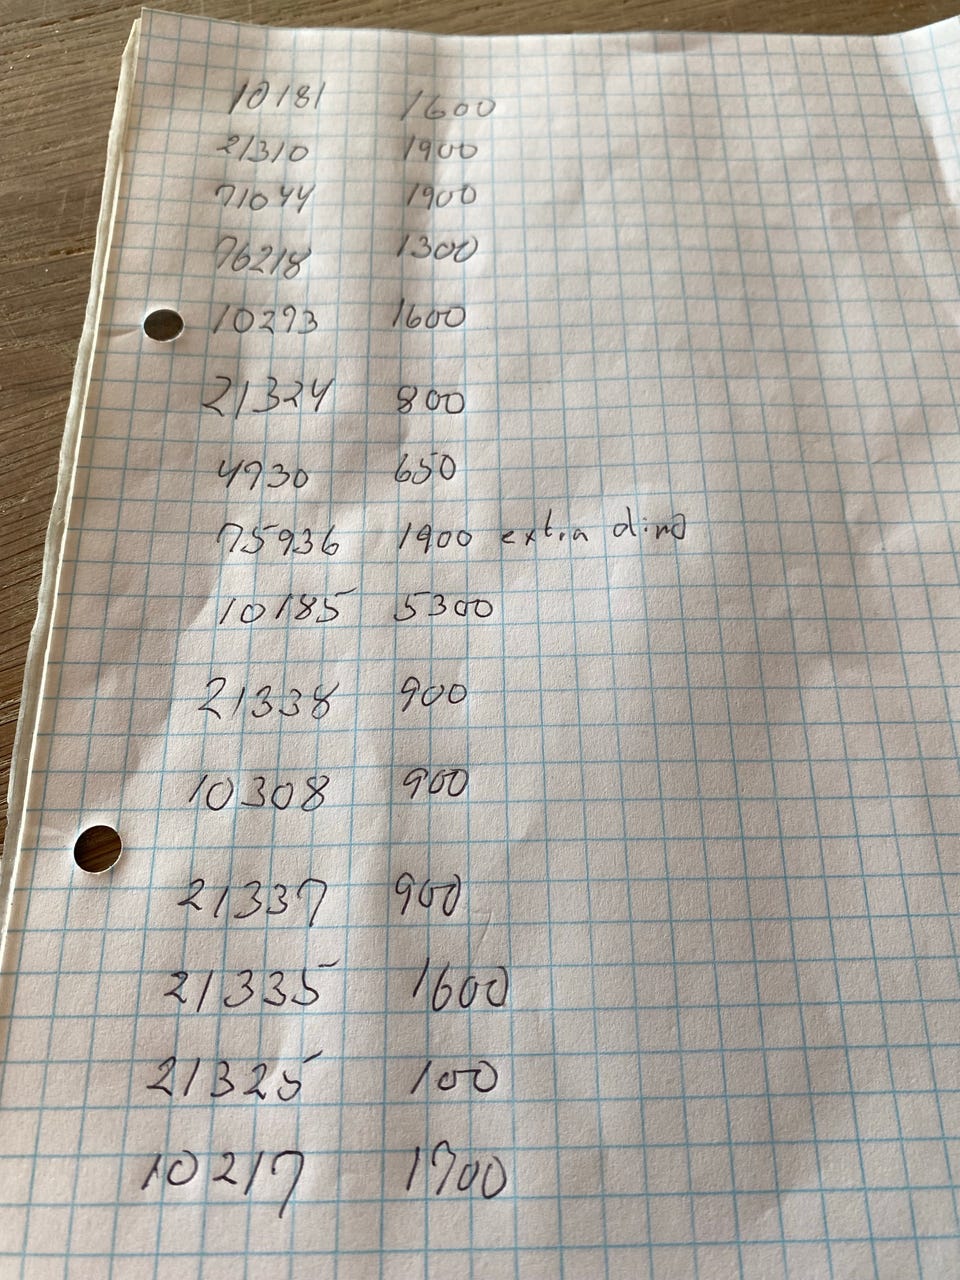 10181 1600
21310 1900
71044 1900
76218 1300
10293 1600
21324 800
4930 650
75936 1900 extra dino
10185 5300
21338 900
10308 900
21337 900
21335 1600
21325 100
10217 1700